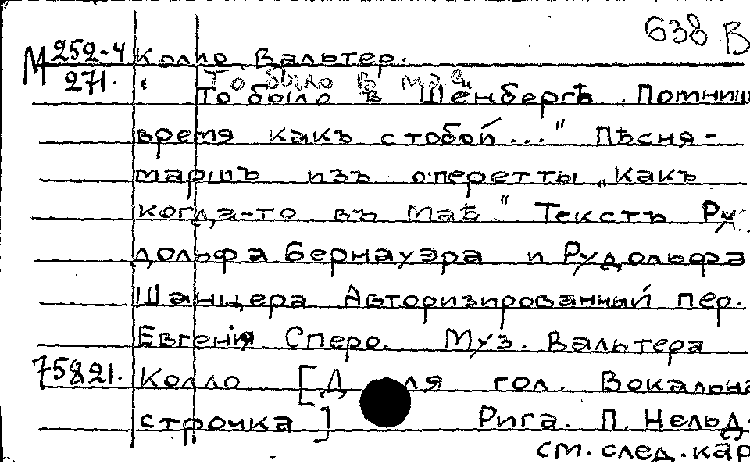 638 В
М 252-4 Колло, Вальтер.
271. "То было в Шенбергѣ. Помниш
время какъ с тобой..." Пѣсня-
маршъ изъ оперетты "Какъ
когда-то въ маѣ" Текстъ Ру
дольфа Бернауэра и Рудольфа
Шанцера Авторизированный пер.
Евгенія Сперо. Муз. Вальтера
75821. Колло [Для гол. Вокальна
строчка] Рига. П. Нельд
см. след. кар